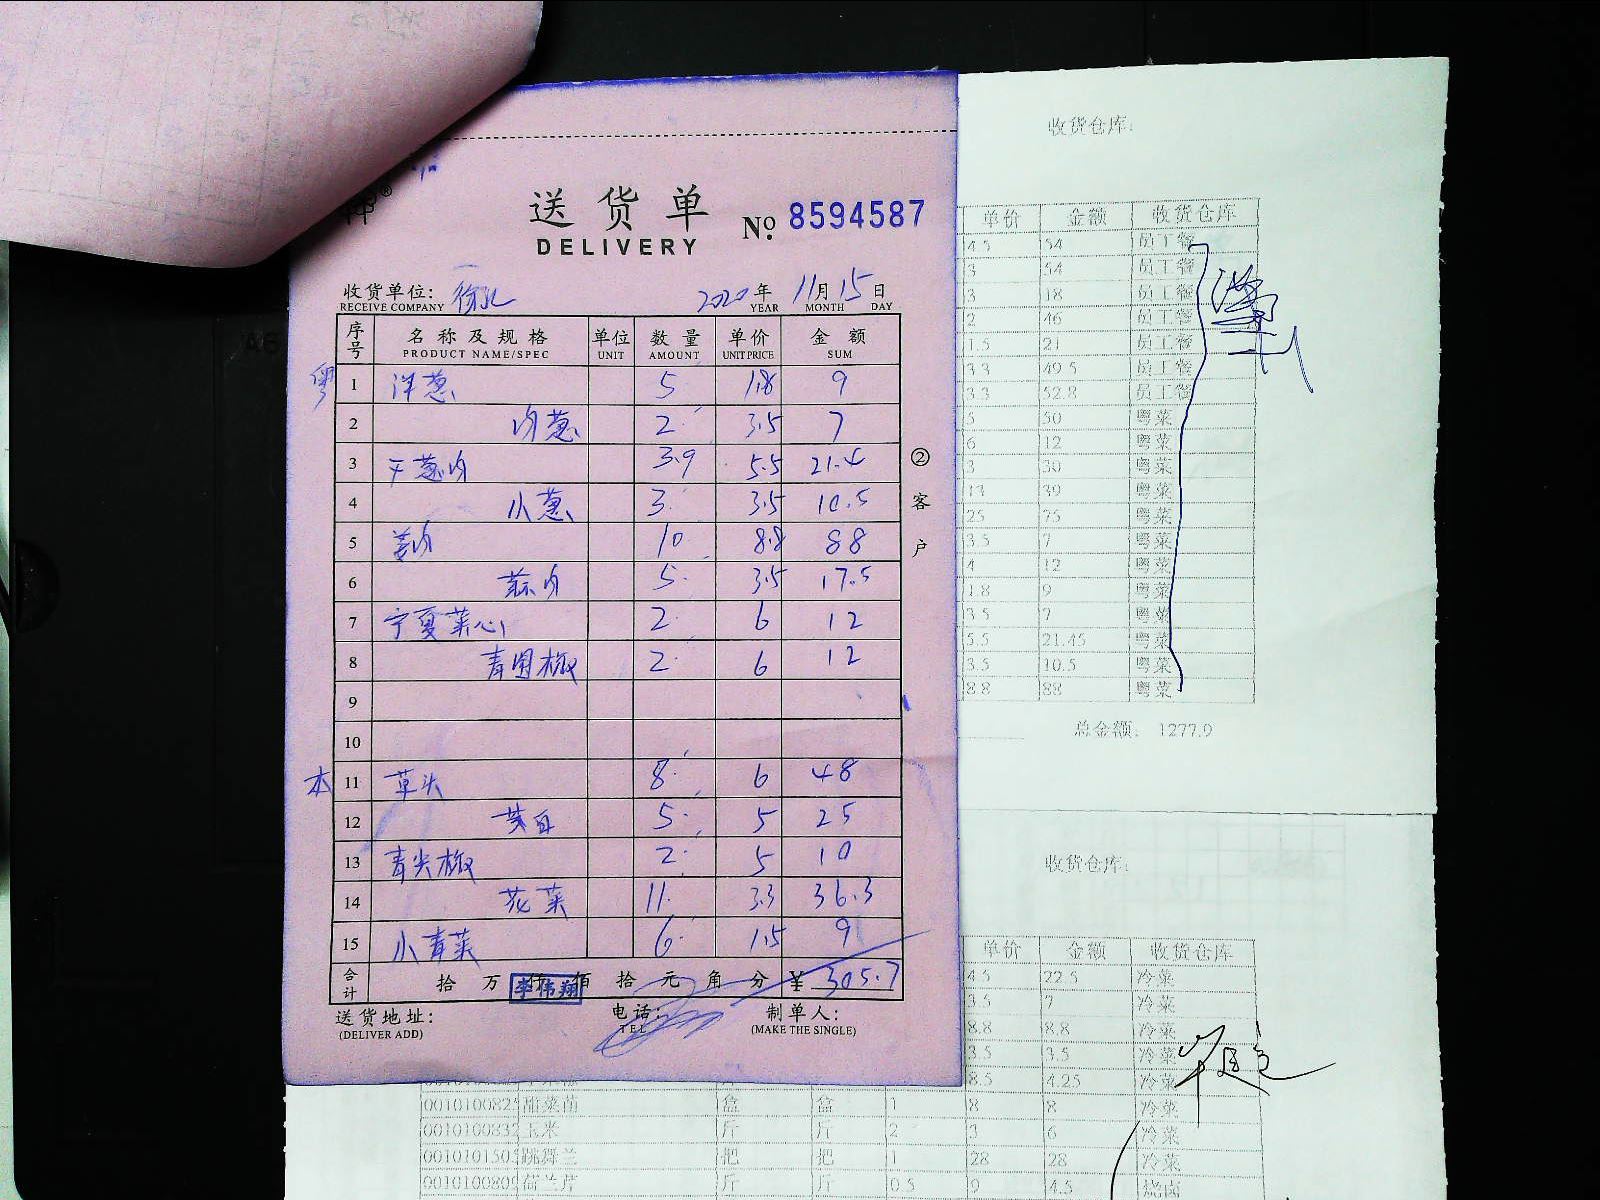 送货单
DELIVERY
№ 8594587
收货单位:
RECEIVE COMPANY
2020年 11月 15日
YEAR MONTH DAY
序号 名称及规格 单位 数量 单价 金额
PRODUCT NAME/SPEC UNIT AMOUNT UNIT PRICE SUM
粤
1 洋葱 5 1.8 9
2 肉葱 2 3.5 7
3 干葱肉 3.9 5.5 21.4
4 小葱 3 3.5 10.5
5 姜肉 10 8.8 88
6 蒜肉 5 3.5 17.5
7 宁夏菜心 2 6 12
8 青圆椒 2 6 12
9
10
本
11 草头 8 6 48
12 茭白 5 5 25
13 青尖椒 2 5 10
14 花菜 11 3.3 36.3
15 小青菜 6 1.5 9
合计 拾 万 仟 佰 拾 元 角 分 ¥ 305.7
李伟翔
送货地址:
(DELIVER ADD)
电话:
TEL
制单人:
(MAKE THE SINGLE)
②客户
收货仓库:
单价 金额 收货仓库
4.5 54 员工餐
3 54 员工餐
3 18 员工餐
2 46 员工餐
1.5 21 员工餐
3.3 49.5 员工餐
3.3 52.8 员工餐
5 50 粤菜
6 12 粤菜
3 30 粤菜
13 39 粤菜
25 75 粤菜
3.5 7 粤菜
4 12 粤菜
1.8 9 粤菜
3.5 7 粤菜
5.5 21.45 粤菜
3.5 10.5 粤菜
8.8 88 粤菜
总金额: 1277.9
收货仓库:
单价 金额 收货仓库
4.5 22.5 冷菜
3.5 7 冷菜
8.8 8.8 冷菜
3.5 3.5 冷菜
8.5 4.25 冷菜
盒 盒 1 8 8 冷菜
0010100832 玉米 斤 斤 2 3 6 冷菜
跳舞兰 把 把 1 28 28 冷菜
荷兰芹 斤 斤 0.5 9 4.5 烧卤